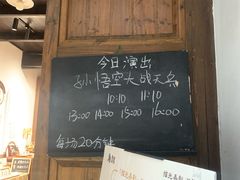 今日演出
孙小悟空大战天兵
10:10 11:10
13:00 14:00 15:00 16:00
每场20分钟